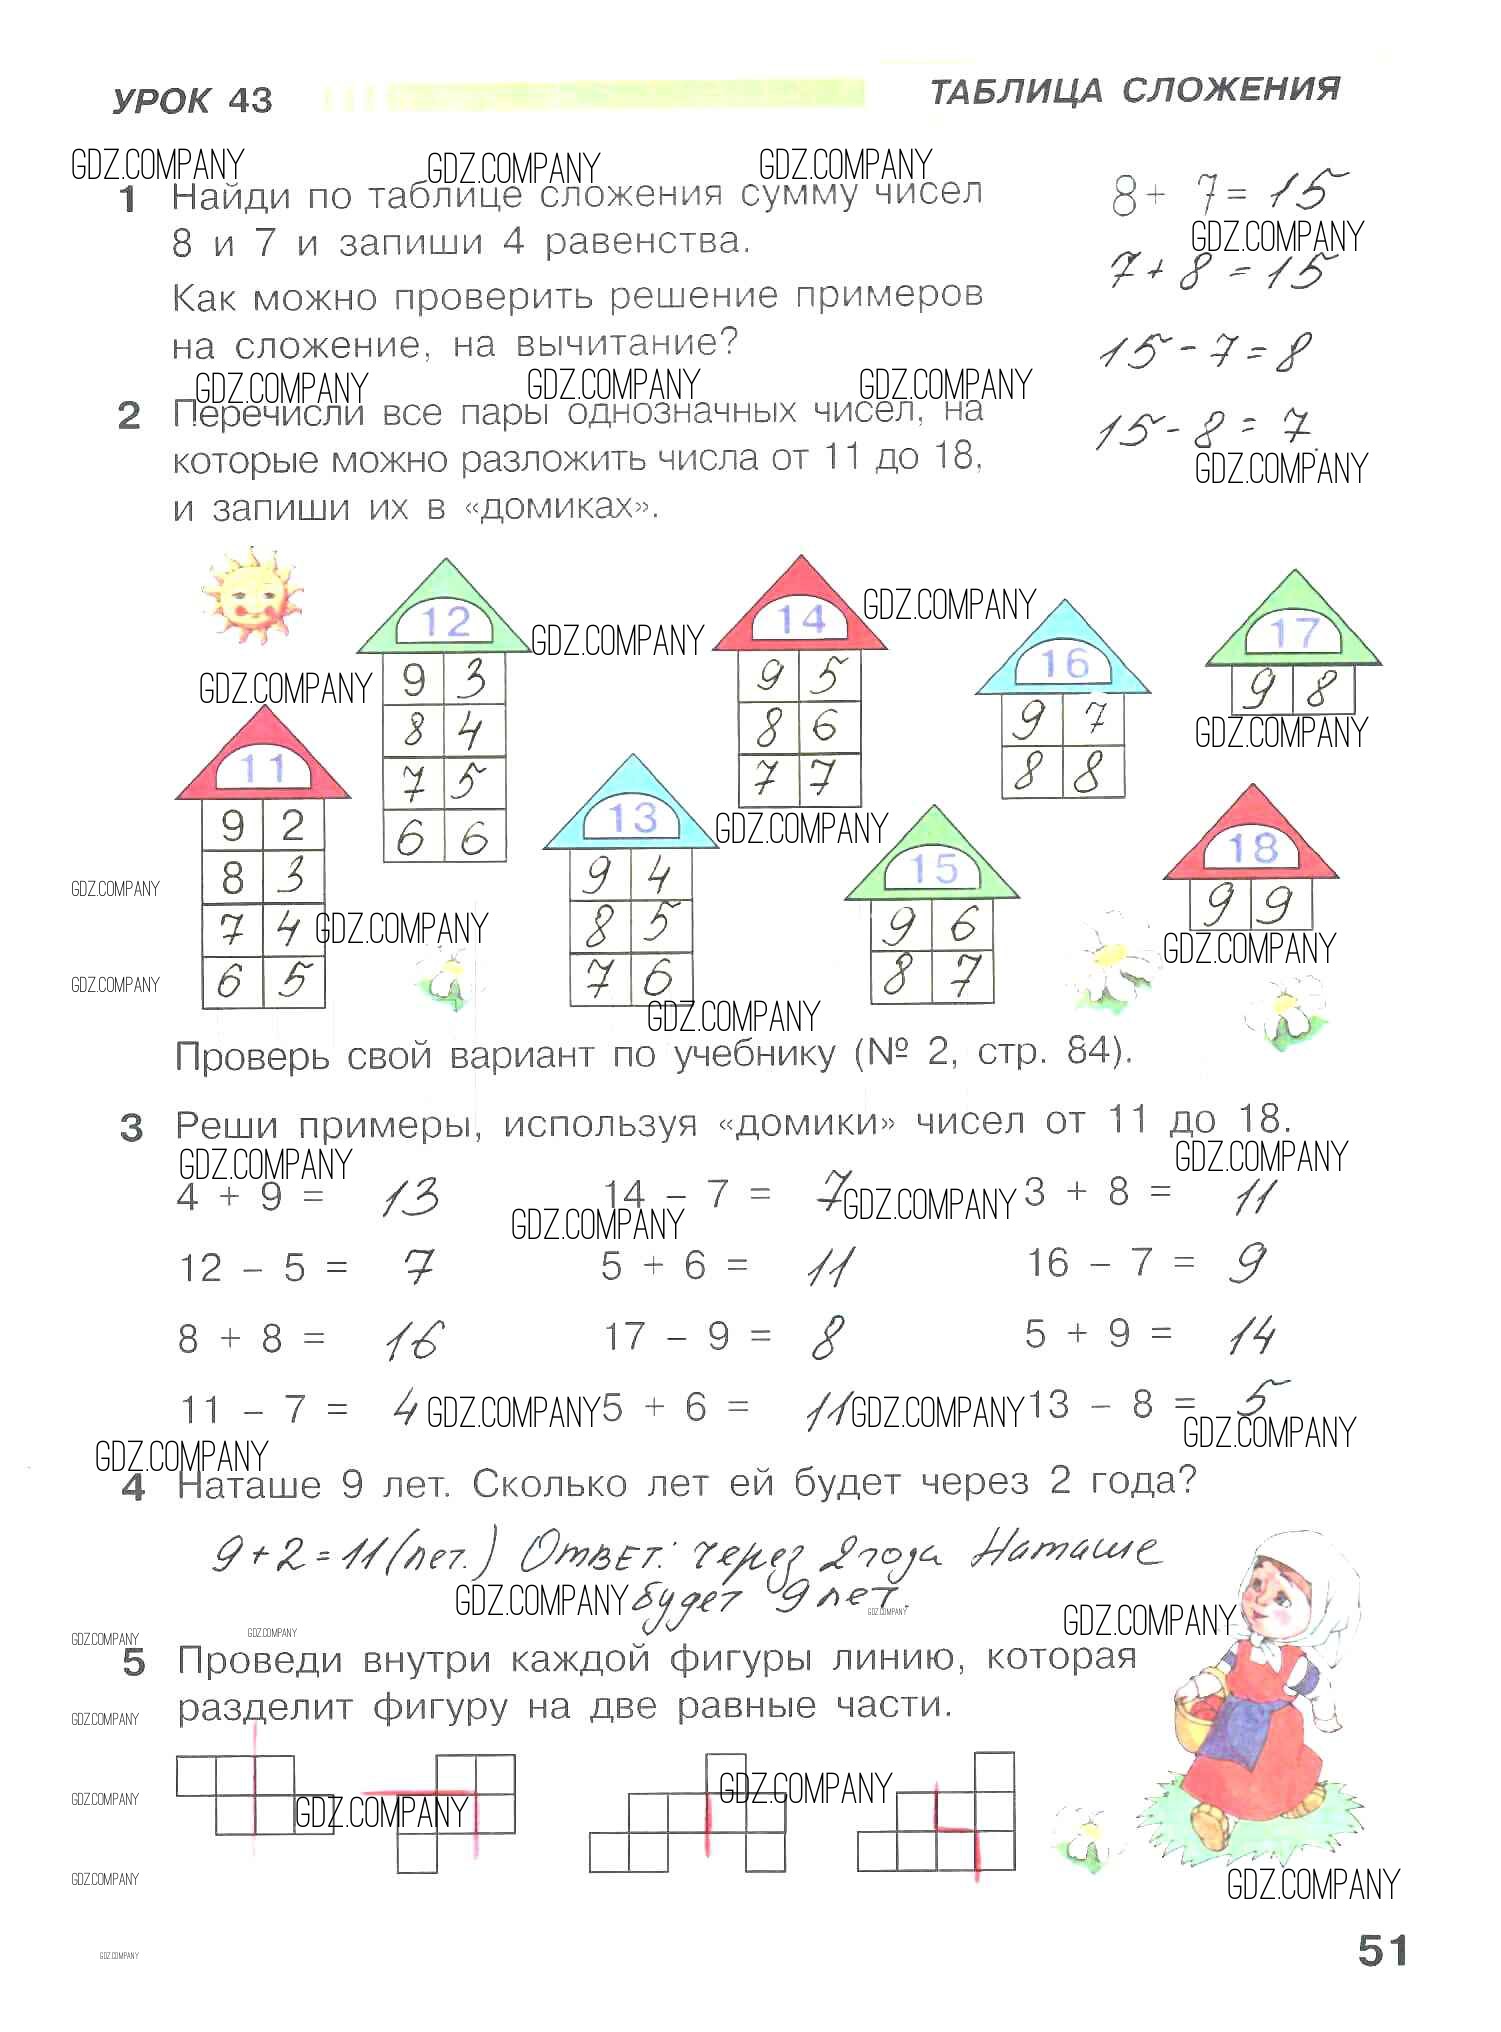 УРОК 43
ТАБЛИЦА СЛОЖЕНИЯ
GDZ.COMPANY GDZ.COMPANY GDZ.COMPANY
1 Найди по таблице сложения сумму чисел
8 и 7 и запиши 4 равенства.
Как можно проверить решение примеров
на сложение, на вычитание?
8 + 7 = 15
GDZ.COMPANY
7 + 8 = 15
15 - 7 = 8
15 - 8 = 7
GDZ.COMPANY
GDZ.COMPANY GDZ.COMPANY GDZ.COMPANY
2 Перечисли все пары однозначных чисел, на
которые можно разложить числа от 11 до 18,
и запиши их в «домиках».
GDZ.COMPANY GDZ.COMPANY GDZ.COMPANY
11
9 2
8 3
7 4
6 5
12
9 3
8 4
7 5
6 6
13
9 4
8 5
7 6
14
9 5
8 6
7 7
15
9 6
8 7
16
9 7
8 8
17
9 8
18
9 9
GDZ.COMPANY
GDZ.COMPANY
GDZ.COMPANY
GDZ.COMPANY
GDZ.COMPANY
GDZ.COMPANY
GDZ.COMPANY
Проверь свой вариант по учебнику (№ 2, стр. 84).
3 Реши примеры, используя «домики» чисел от 11 до 18.
GDZ.COMPANY GDZ.COMPANY
4 + 9 = 13 14 – 7 = 7 GDZ.COMPANY 3 + 8 = 11
GDZ.COMPANY
12 – 5 = 7 5 + 6 = 11 16 – 7 = 9
8 + 8 = 16 17 – 9 = 8 5 + 9 = 14
11 – 7 = 4 GDZ.COMPANY 5 + 6 = 11 GDZ.COMPANY 13 – 8 = 5
GDZ.COMPANY GDZ.COMPANY
4 Наташе 9 лет. Сколько лет ей будет через 2 года?
9 + 2 = 11 (лет.) Ответ: через 2 года Наташе
GDZ.COMPANY будет 9 лет. GDZ.COMPANY GDZ.COMPANY
GDZ.COMPANY GDZ.COMPANY
5 Проведи внутри каждой фигуры линию, которая
разделит фигуру на две равные части.
GDZ.COMPANY
GDZ.COMPANY GDZ.COMPANY GDZ.COMPANY
GDZ.COMPANY GDZ.COMPANY
GDZ.COMPANY
51